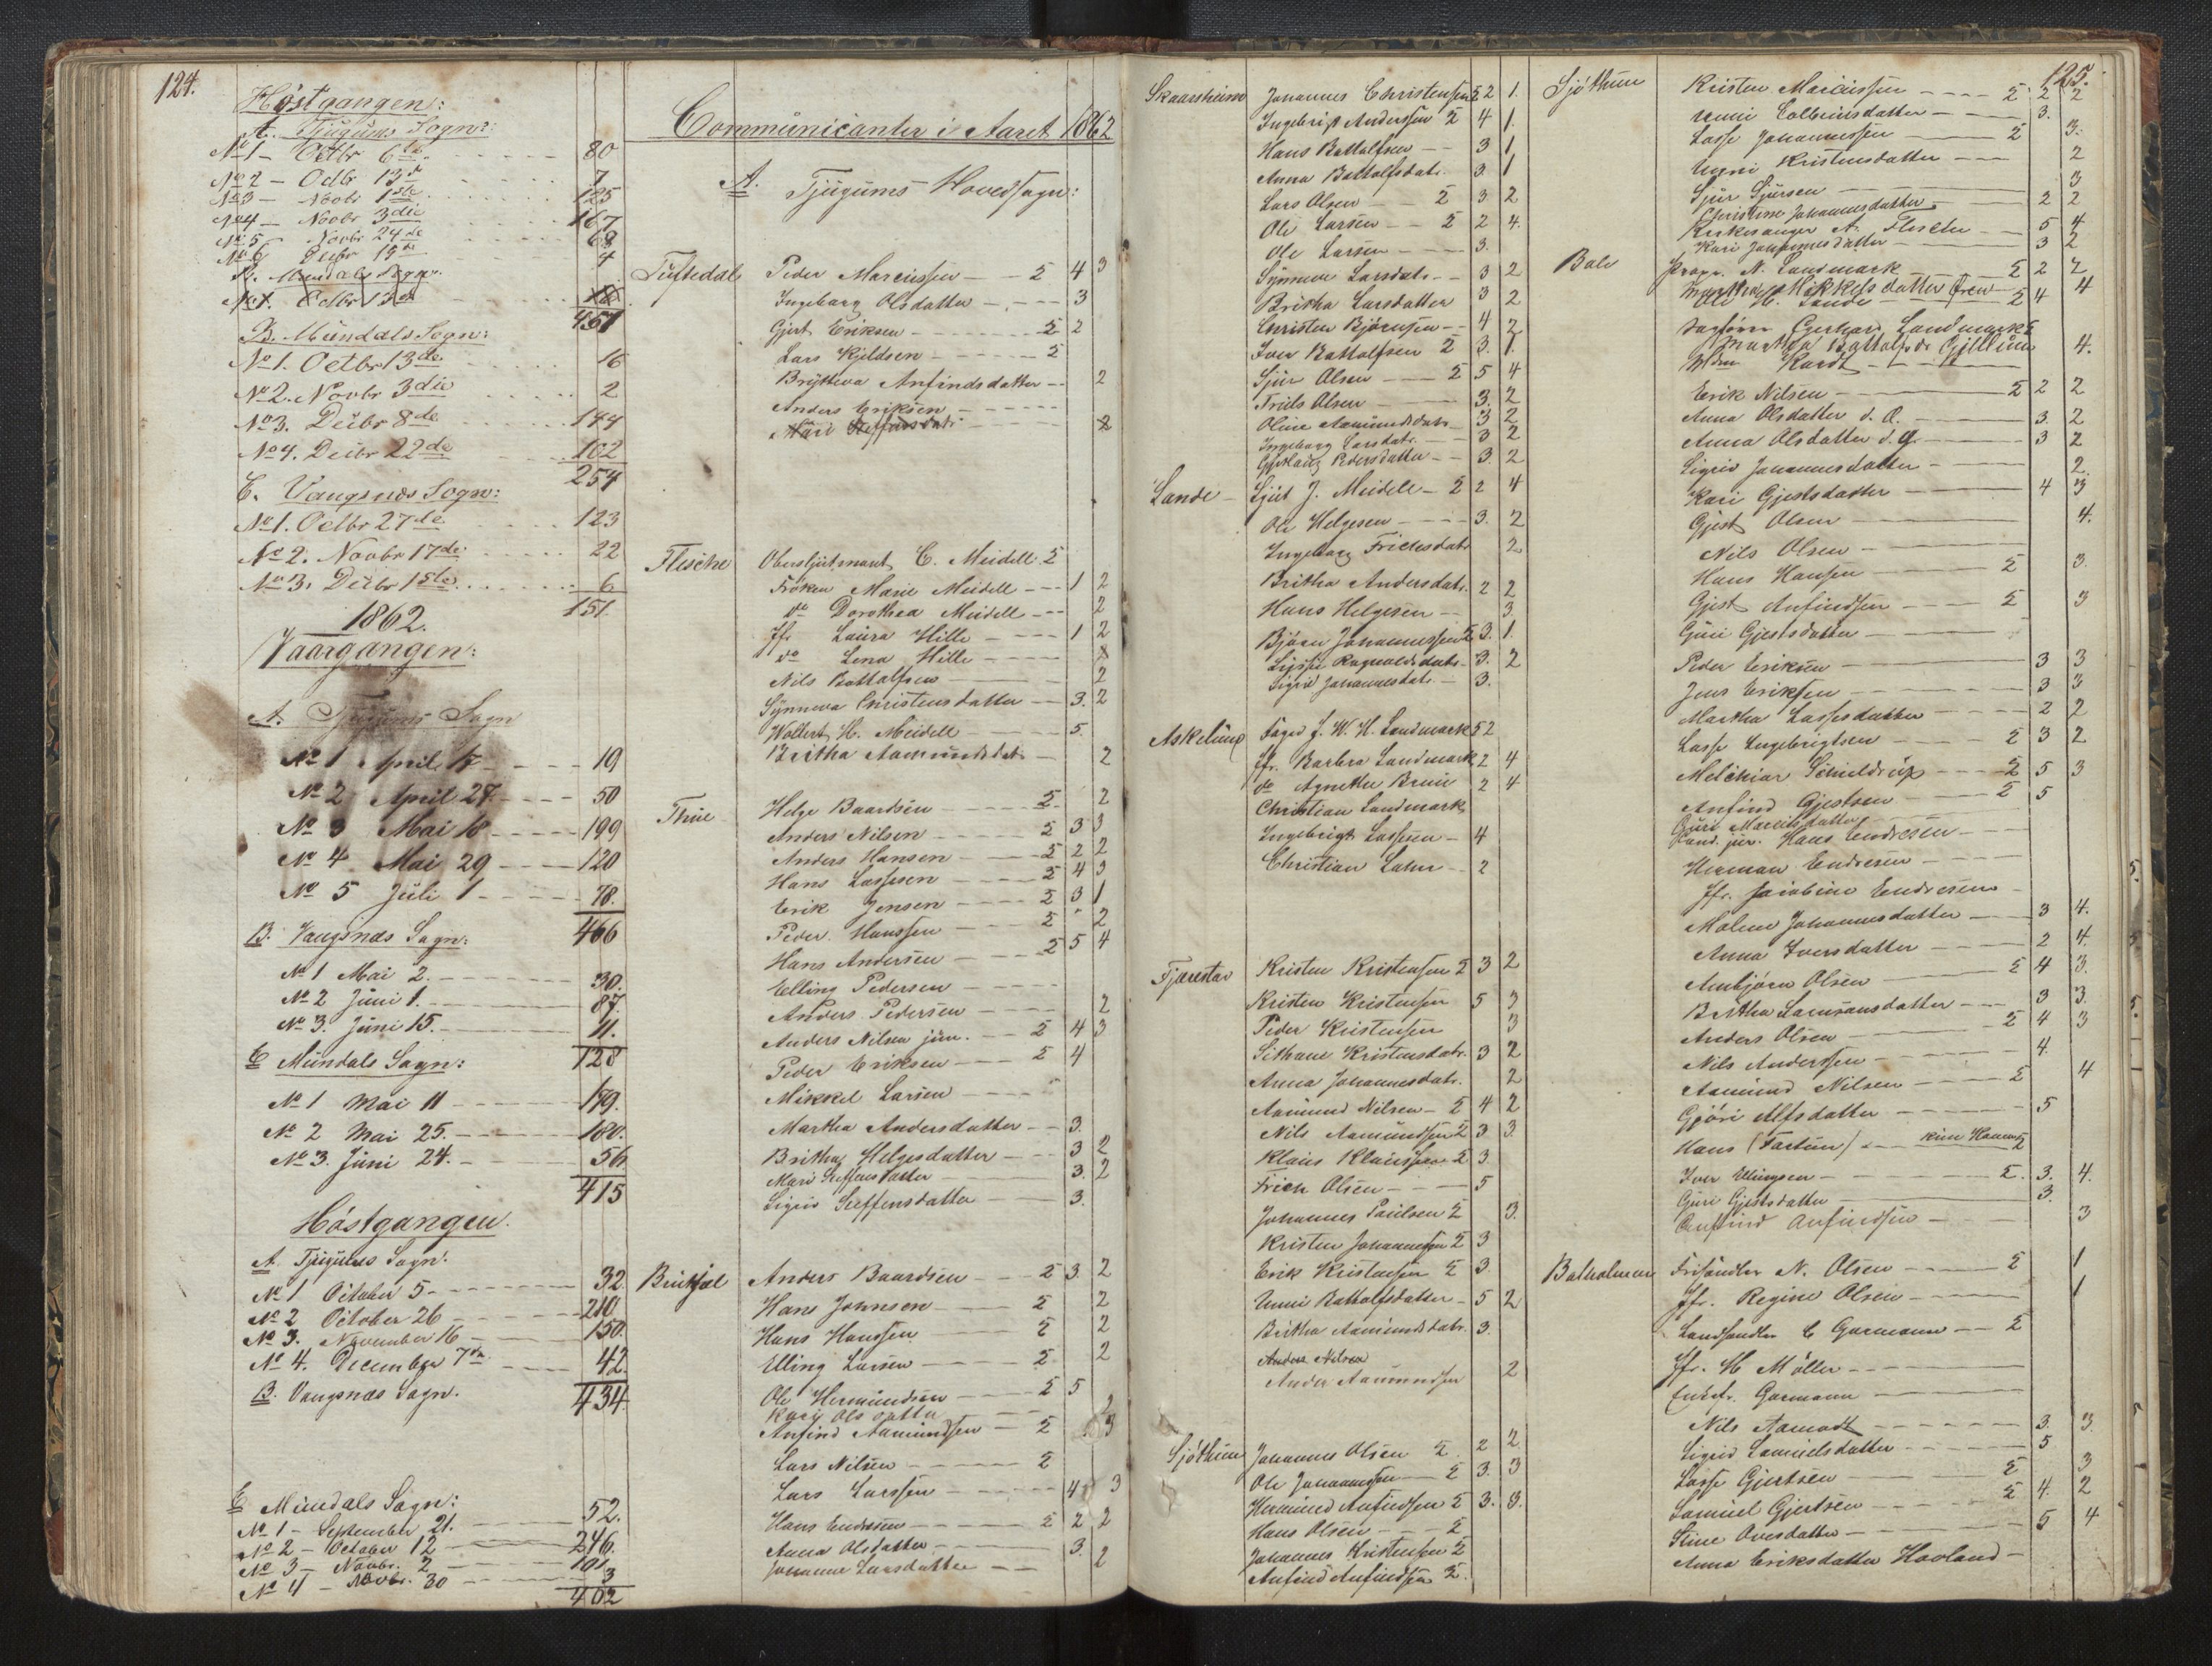 124.
Høstgangen:
A. Tjugums Sogn:
No 1 - Octbr 6te 80
No 2 - Octbr 13de 7
No 3 - Novbr 1ste 125
No 4 - Novbr 3die 167
No 5 Novbr 24de 68
No 6 Decbr 15de 4
B. Mundals Sogn:
No 1. Octbr 13de
451
B. Mundals Sogn:
No 1. Octbr 13de 16
No 2. Novbr 3die 2
No 3. Decbr 8de 144
No 4. Decbr 22de 102
254
C. Vangsnæs Sogn:
No 1. Octbr 27de 123
No 2. Novbr 17de 22
No 3. Decbr 1ste 6
151
1862.
Vaargangen:
A. Tjugums Sogn
No 1 April 19
No 2 April 27 50
No 3 Mai 18 199
No 4 Mai 29 120
No 5 Juli 1 78.
466
B. Vangsnæs Sogn:
No 1 Mai 2. 30.
No 2 Juni 1. 87.
No 3. Juni 15. 11.
128
C Mundals Sogn:
No 1 Mai 11 179.
No 2 Mai 25. 180.
No 3. Juni 24. 56
415
Høstgangen.
A. Tjugums Sogn.
No 1 October 5 32
No 2 October 26 210
No 3. November 16 150.
No 4. December 7de 42
434
B. Vangsnæs Sogn.
C Mundals Sogn:
No 1 - September 21. 52.
No 2 - October 12 246.
No 3 - Novbr. 2 101
No 4 - Novbr. 30 3
402
Communicanter i Aaret 1862
A. Tjugums Hovedsogn:
Tuftedal Peder Marcussen 2 4 3
Ingeborg Olsdatter 3
Gjert Eriksen 2 2
Lars Kjeldsen 2
Brytteva Anfindsdatter 2
Anders Eriksen
Mari Steffensdatr 2
Flesche Obersljutnant C. Meidell 2
Frøken Marie Meidell 1 2
do Dorothea Meidell 2
Jfr Laura Hille 1 2
do Lena Hille
Nils Battolfsen 2
Synneva Christensdatter 3. 2
Wollert H. Meidell 5
Britha Aamundsdatr 2
Thue Helge Baardsen 2. 2
Anders Nilsen 2 3 3
Anders Hansen 2 2 2
Hans Lassesen 2 4 3
Erik Jensen 2 3 1
Peder Hanssen 2 2
Hans Andersen 2 5 4
Elling Pedersen
Anders Pedersen 2
Anders Nilsen jun. 2 4 3
Peder Eriksen 2 4
Mikkel Larsen
Martha Andersdatter 3.
Britha Helgesdatter 3 2
Mari Steffensdatter 3. 2
Sigrid Steffensdatter 3.
Anders Baardsen 2 3. 2
Hans Johnsen 2 2
Hans Hanssen 2 2
Elling Larsen 2 2
Ole Hermundsen 2 5
Kari Olsdatter
Anfind Aamundsen 2 3
Lars Nilsen 2
Lars Larssen 4 3
Hans Endresen 2 2 2
Anna Olsdatter 3.
Johanne Larsdatter 2
Skaarsheim Johannes Christensen 2 2 1.
Ingebrigt Anderssen 2 4 1.
Hans Battolfsen 3 1
Anna Battolfsdatr. 3. 1
Lars Olsen 2 3 2
Ole Larsen 2 2 4.
Ole Larsen 3.
Synneve Larsdatr 3 2
Britha Larsdatter 3 2
Christen Bjørnsen 4 2
Iver Battolfsen 2 3. 1.
Sjur Olsen 2 5 4
Friels Olsen 3. 2
Oline Aamundsdatr 3 2
Ingeborg Larsdatr. 3 2
Gjertrug Pedersdatter 3. 2
Lande J. Meidell 2 2 4
Ole Helgesen 3. 2
Ingeborg Fricksdatr 2
Britha Andersdatr. 2 2
Hans Helgesen 3
Bjørn Johannessen 2 3. 1.
Ragnaldsdatr. 3. 2
Sigrid Johannesdatr 3.
Askelund Foged J. W. H. Landmark 5 2
Jfr. Barbra Landmark 2 4
do Agnethe Bruun 2 4
Christian Landmark
Ingebrigt Lassesen 4
Christian Lahn 2
Fjærestad Kristen Kristensen 2 3 2
Kristen Kristensen 5 3
Peder Kristensen 3
Kristensdatr. 3 2
Anna Johannesdatr. 2
Aamund Nilsen 2 4 2
Nils Aamundsen 2 3 3.
Klaus Klaussen 2 3.
Frich Olsen 5
Johannes Paulsen 2 3.
Kristen Johannessen 2 3
Erik Kristensen 2 3.
Unni Battolfsdatter 5 2
Britha Aamundsdatr. 3.
Anders Nilsen
Anders Aamundsen 2
Sjøthun Johannes Olsen 2 2 2
Ole Johannessen 2 3. 3
Hermund Anfindsen 2 3. 3.
Hans Olsen 2
Johannes Kristensen 2
Anfind Anfindsen 2.
125.
Sjøthun Kristen Marcussen 2 2 2
Unni Colbeinsdatter 3.
Lasse Johannessen 2 3.
Unni Kristensdatter 2
Sjur Sjursen 3
Christine Johannesdatter 2 2
Kirkesanger A. Flesche 5 4
Kari Johannesdatter 3 2
Bale Propr. N. Landmark 2 2 2
Martha Mikkelsdatter
Ole H. Lande 2 4 4
Sagfører Landmark 2
4.
Mdm Kardt
Erik Nilsen 2 2 2
Anna Olsdatter d. 3. 2
Anna Olsdatter d. y. 3 2
Sigrid Johannesdatter 2.
Kari Gjestsdatter 4 3
Gjest Olsen 4.
Nils Olsen
Hans Hansen 2 3.
Gjest Anfindsen 2 3
Guri Gjestsdatter
Peder Eriksen 3 3
Jens Eriksen 3 3
Martha Lassesdatter 2 2
Lasse Ingebrigtsen 2 3 2
Melchior Schieldrup 2 5 3
Anfind Gjestsen 2 5
Guri Marcusdatter
Cand. jur. Hans Endresen
Herman Endresen
Jfr. Jacobine Endresen
Malene Johannesdatter 3 4.
Anna Iversdatter 2 4.
Anbjørn Olsen 2 4 3.
Britha Larsdatter 3 3.
Anders Olsen 2 4 3
Nils Anderssen 4.
Aamund Nilsen 2 4
Gjøri Alfsdatter 5
Hans (Tartun)
Iver Ellingsen 2. 3. 4.
Guri Gjestsdatter 3.
Anfind Anfindsen 3
Balholmen N. Olsen 2 1
Jfr. Regine Olsen 1
Landhandler C Garmann 2
Jfr. M Møller
Enkefr. Garmann
Nils Aamodt 3. 3.
Sigrid Samuelsdatter 5
Lasse Gjertsen 2 3
Samuel Gjertsen 2 4. 2
Stine Ovesdatter 5 4
Anna Eriksdatter Hovland